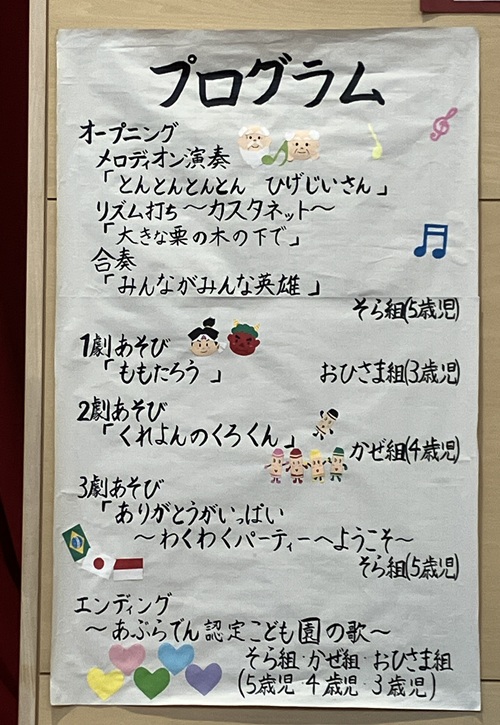 プログラム
オープニング
メロディオン演奏
「とんとんとんとん ひげじいさん」
リズム打ち ～カスタネット～
「大きな栗の木の下で」
合奏
「みんながみんな英雄」
そら組(5歳児)
1劇あそび
「ももたろう」
おひさま組(3歳児)
2劇あそび
「くれよんのくろくん」
かぜ組(4歳児)
3劇あそび
「ありがとうがいっぱい
～わくわくパーティーへようこそ～
そら組(5歳児)
エンディング
～あぶらでん認定こども園の歌～
そら組・かぜ組・おひさま組
(5歳児・4歳児・3歳児)